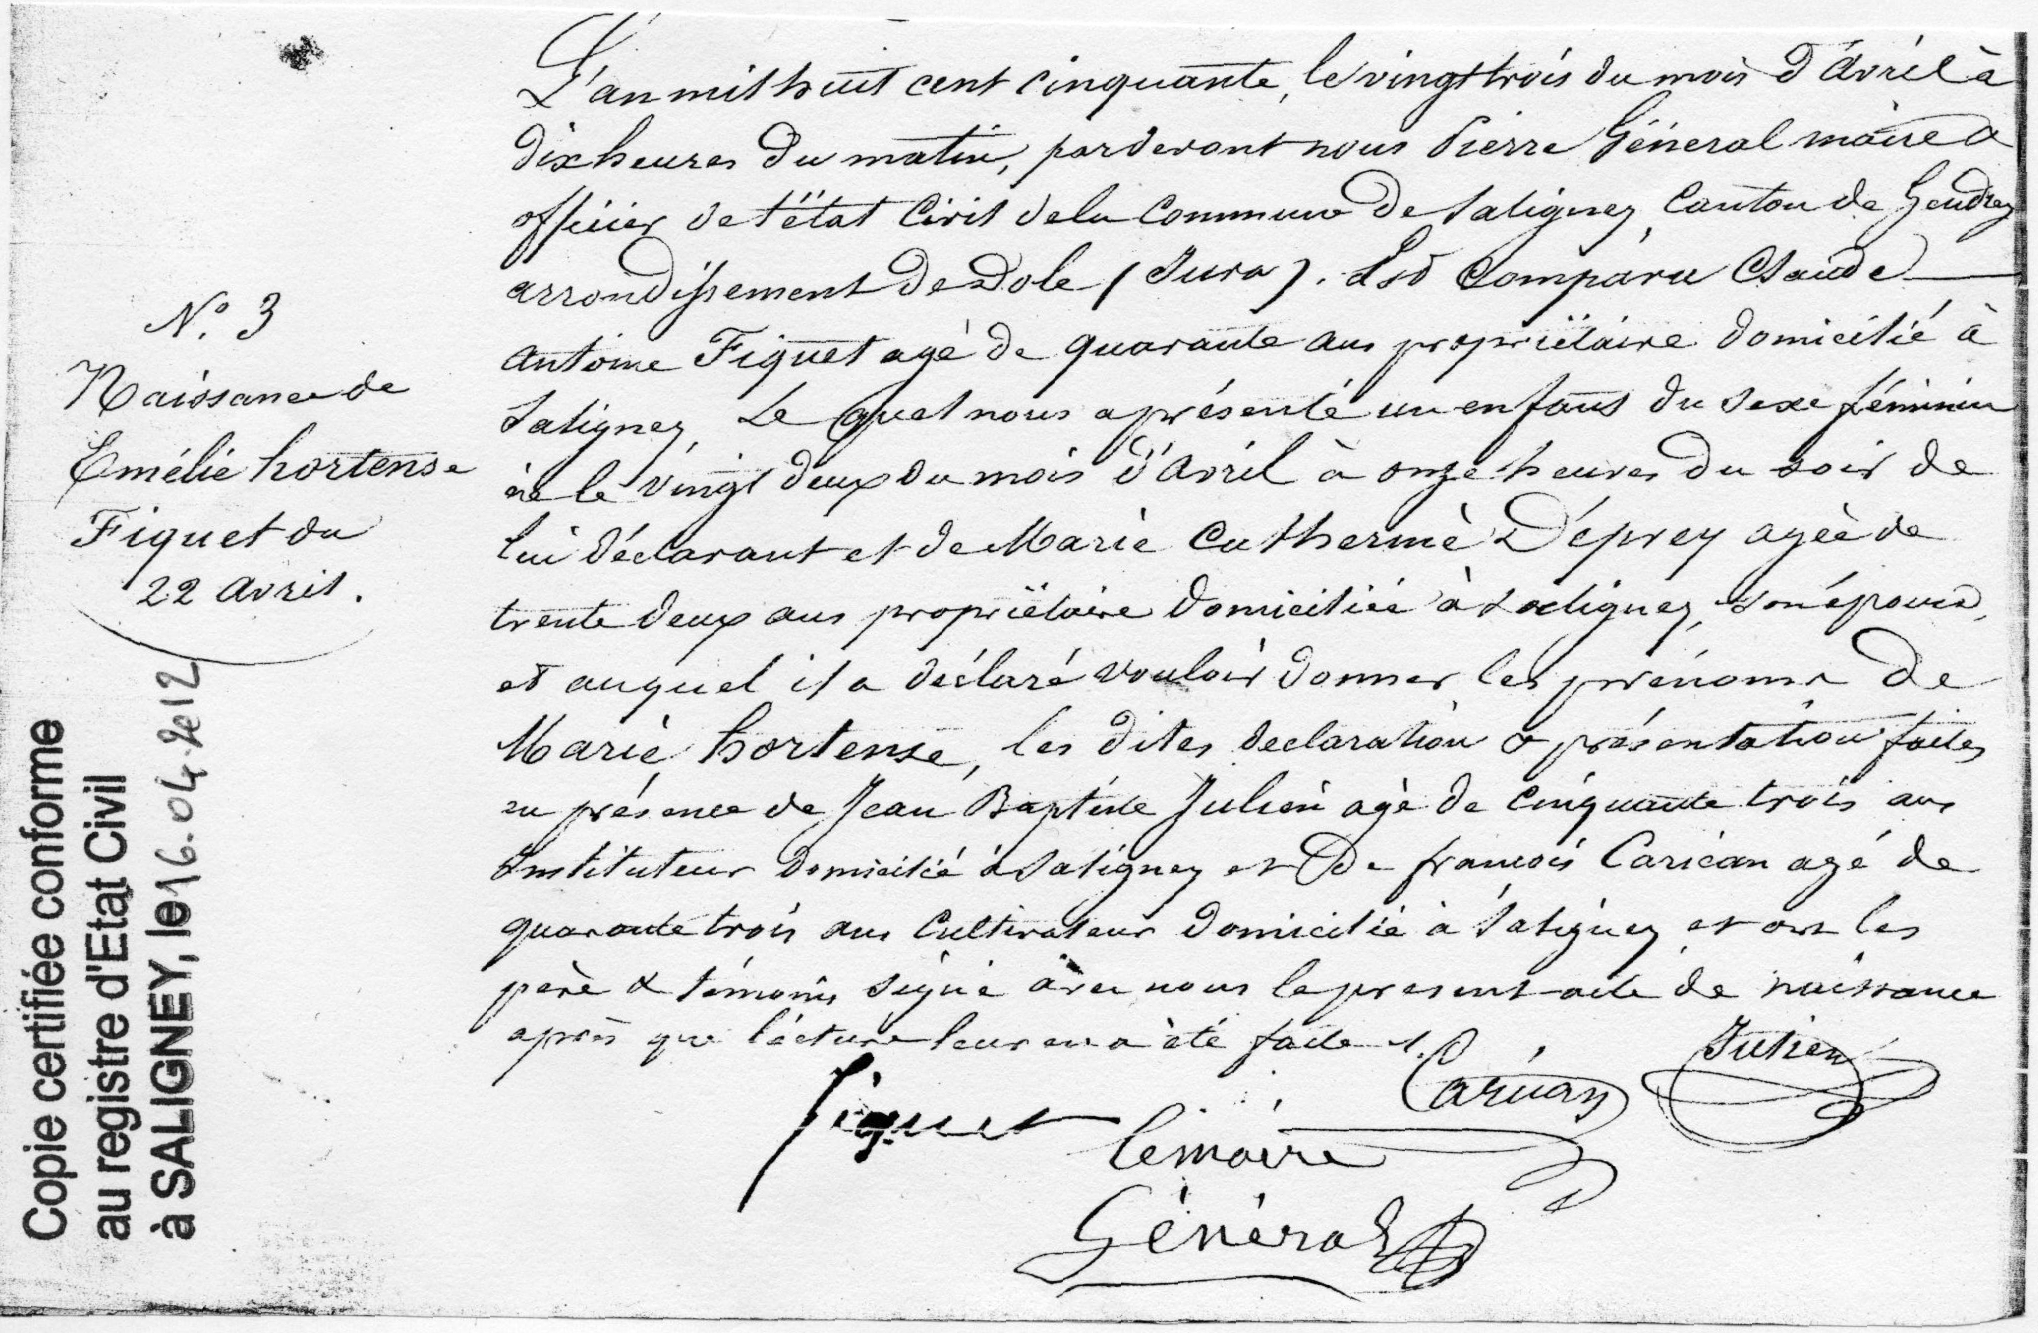 N.° 3
Naissance de
Emélie hortense
Fiquet du
22 avril.
L'an mil huit cent cinquante, le vingt trois du mois d'avril à
dix heures du matin, par devant nous Pierre Géneral maire &
officier de l'état Civil de la Commune de Saligney, Canton de Gendrey
arrondissement de Dole (Jura). Est Comparu Claude
antoine Fiquet agé de quarante ans propriétaire domicilié à
Saligney, Le quel nous a présenté un enfant du sexe féminin
né le vingt deux du mois d'avril à onze heures du soir de
lui déclarant et de Marie Catherine Déprey agée de
trente deux ans propriétaire domiciliée à Saligney, son épouse,
et auquel il a déclaré vouloir donner les prénoms de
Marie hortense, les dites declaration & présentation faites
en présence de Jean Baptiste Julien agé de cinquante trois ans
Instituteur domicilié à Saligney et de francois Carican agé de
quarante trois ans Cultivateur domicilié à Saligney et ont les
père & témoins signé avec nous le present acte de naissance
après que lécture leur en a été faite
Julien
Fiquet
le maire
Général
Copie certifiée conforme
au registre d'Etat Civil
à SALIGNEY, le 16.04.2012